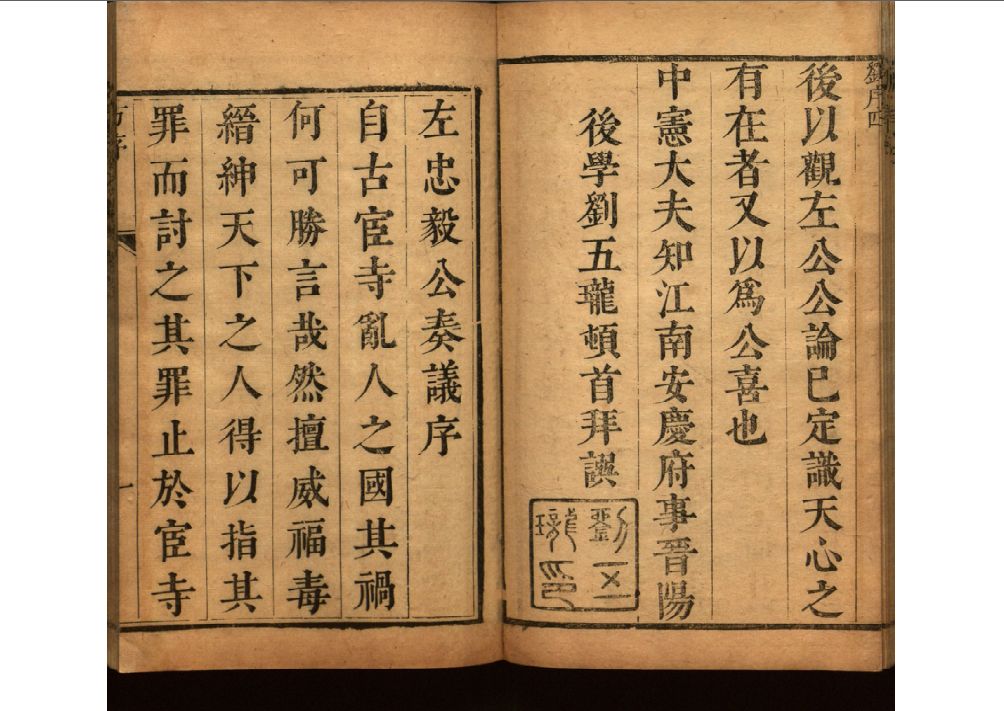 劉序四
後以觀左公公論已定識天心之
有在者又以爲公喜也
中憲大夫知江南安慶府事晉陽
後學劉五瓏頓首拜譔
劉五
瓏印
左忠毅公奏議序
自古宦寺亂人之國其禍
何可勝言哉然擅威福毒
縉紳天下之人得以指其
罪而討之其罪止於宦寺
方序
一